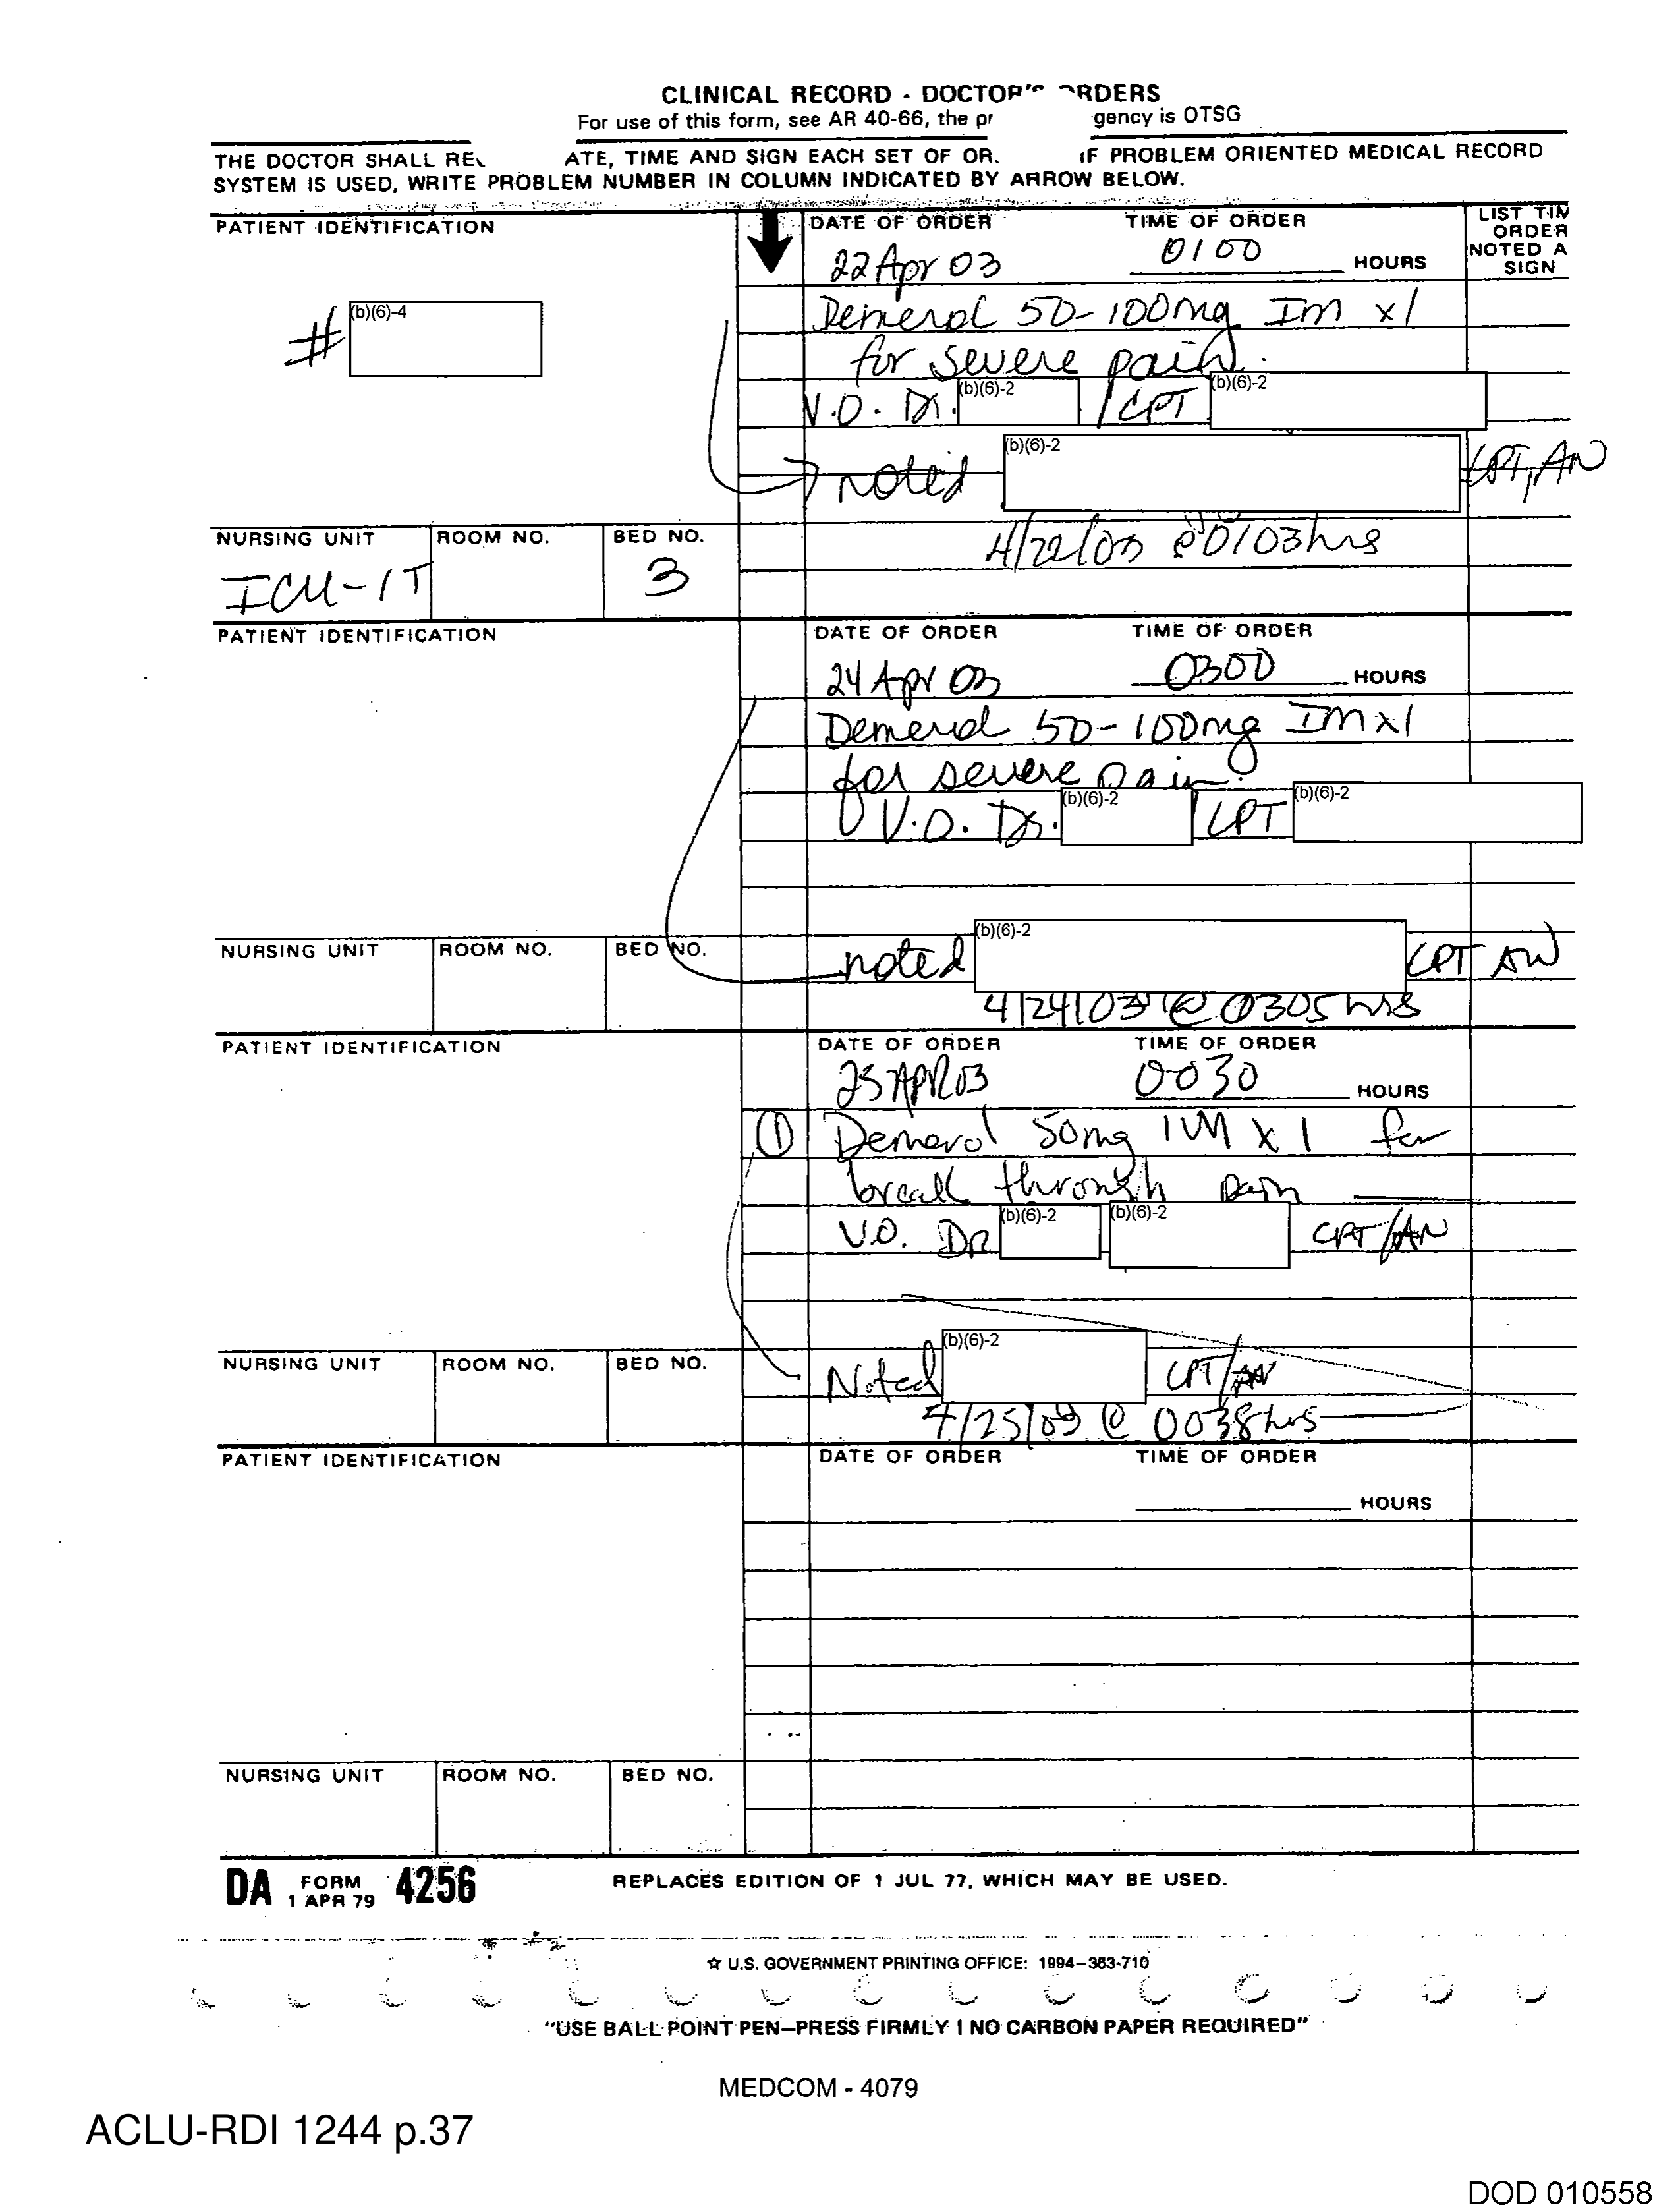 CLINICAL RECORD - DOCTOR'S ORDERS
For use of this form, see AR 40-66, the pr gency is OTSG
THE DOCTOR SHALL REC ATE, TIME AND SIGN EACH SET OF OR. IF PROBLEM ORIENTED MEDICAL RECORD
SYSTEM IS USED, WRITE PROBLEM NUMBER IN COLUMN INDICATED BY ARROW BELOW.
PATIENT IDENTIFICATION DATE OF ORDER TIME OF ORDER LIST TIM
ORDER
NOTED A
SIGN
22 Apr 03 0100 HOURS
# (b)(6)-4
Demerol 50-100mg IM x1
for severe pain.
V.O. Dr. (b)(6)-2 / CPT (b)(6)-2
noted (b)(6)-2 CPT, AN
4/22/03 @ 0103hrs
NURSING UNIT ROOM NO. BED NO.
ICU-1T 3
PATIENT IDENTIFICATION DATE OF ORDER TIME OF ORDER
24 Apr 03 0300 HOURS
Demerol 50-100mg IM x1
for severe pain.
V.O. Dr. (b)(6)-2 / CPT (b)(6)-2
NURSING UNIT ROOM NO. BED NO.
noted (b)(6)-2 CPT AN
4/24/03 @ 0305 hrs
PATIENT IDENTIFICATION DATE OF ORDER TIME OF ORDER
25 APR 03 0030 HOURS
① Demerol 50mg IM x 1 for
break through pain
V.O. DR (b)(6)-2 (b)(6)-2 CPT/AN
NURSING UNIT ROOM NO. BED NO.
Noted (b)(6)-2 CPT/AN
4/25/03 @ 0038hrs
PATIENT IDENTIFICATION DATE OF ORDER TIME OF ORDER
HOURS
NURSING UNIT ROOM NO. BED NO.
DA FORM 4256
1 APR 79
REPLACES EDITION OF 1 JUL 77, WHICH MAY BE USED.
☆ U.S. GOVERNMENT PRINTING OFFICE: 1994-363-710
"USE BALL POINT PEN—PRESS FIRMLY I NO CARBON PAPER REQUIRED"
MEDCOM - 4079
ACLU-RDI 1244 p.37
DOD 010558